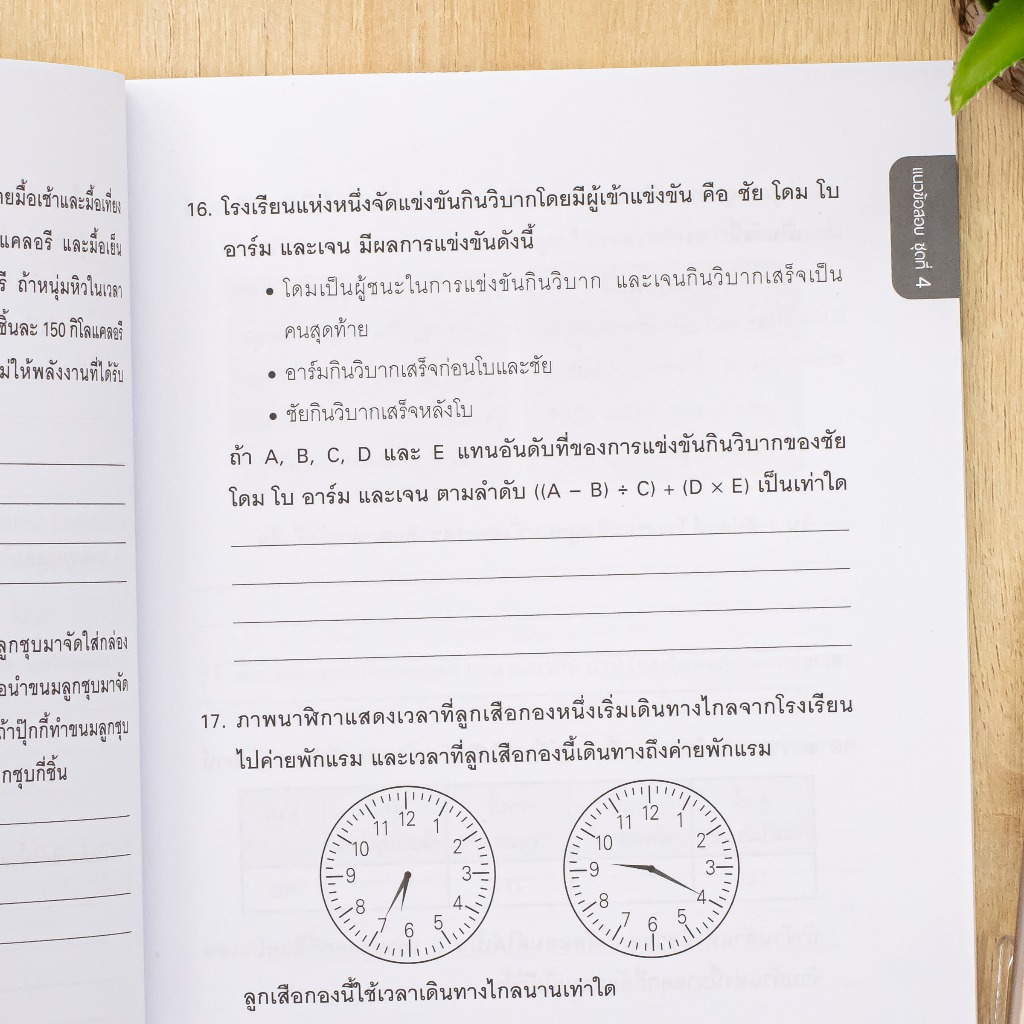 มื้อเช้าและมื้อเที่ยง
แคลอรี และมื้อเย็น
ถ้าหนุ่มหิวในเวลา
ชิ้นละ 150 กิโลแคลอรี
ให้พลังงานที่ได้รับ
ลูกชุบมาจัดใส่กล่อง
นำขนมลูกชุบมาจัด
ถ้าปุ๊กกี้ทำขนมลูกชุบ
กี่ชิ้น
แนวข้อสอบ ชุดที่ 4
16. โรงเรียนแห่งหนึ่งจัดแข่งขันกินวิบากโดยมีผู้เข้าแข่งขัน คือ ชัย โดม โบ
อาร์ม และเจน มีผลการแข่งขันดังนี้
• โดมเป็นผู้ชนะในการแข่งขันกินวิบาก และเจนกินวิบากเสร็จเป็น
คนสุดท้าย
• อาร์มกินวิบากเสร็จก่อนโบและชัย
• ชัยกินวิบากเสร็จหลังโบ
ถ้า A, B, C, D และ E แทนอันดับที่ของการแข่งขันกินวิบากของชัย
โดม โบ อาร์ม และเจน ตามลำดับ ((A − B) ÷ C) + (D × E) เป็นเท่าใด
17. ภาพนาฬิกาแสดงเวลาที่ลูกเสือกองหนึ่งเริ่มเดินทางไกลจากโรงเรียน
ไปค่ายพักแรม และเวลาที่ลูกเสือกองนี้เดินทางถึงค่ายพักแรม
12 1 2 3 4 5 6 7 8 9 10 11
12 1 2 3 4 5 6 7 8 9 10 11
ลูกเสือกองนี้ใช้เวลาเดินทางไกลนานเท่าใด